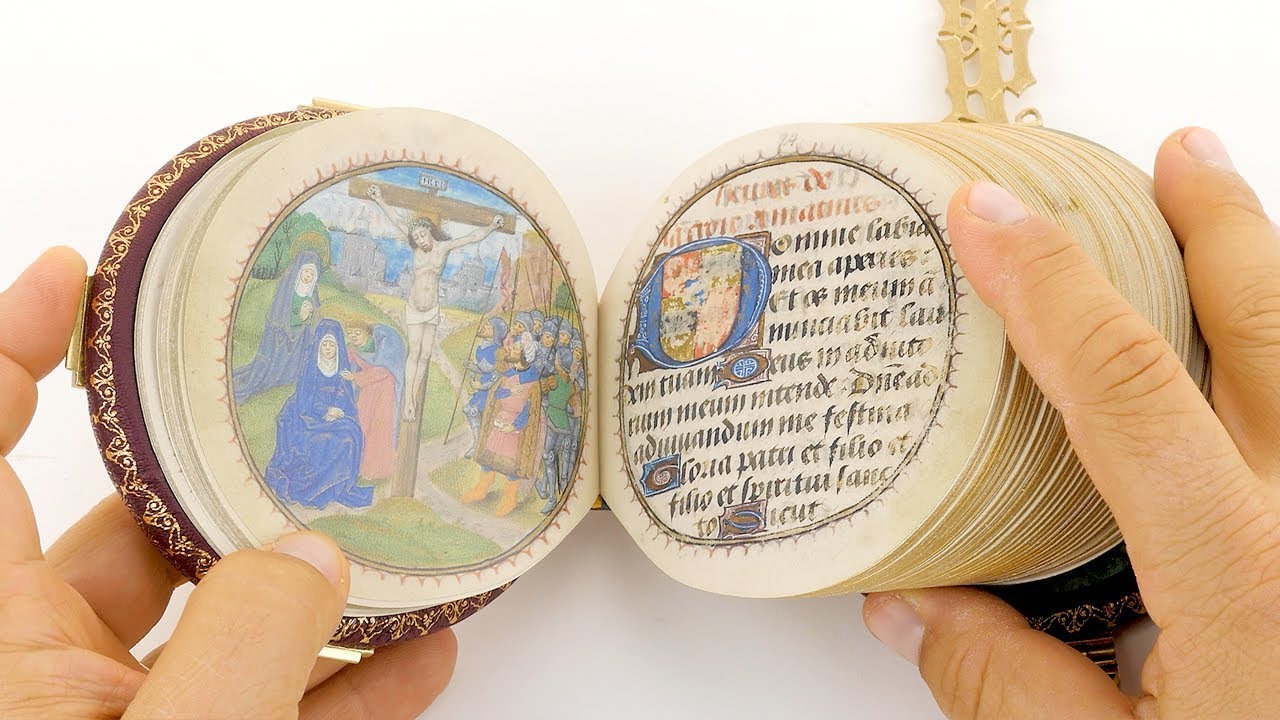 INRI
heures de
matines
Domine labia
mea aperies:
Et os meum a
nunciabit lau
tuam Deus in adiuto
rium meum intende. Dñe ad
adiuuandum me festina
Gloria patri et filio et
filio et spiritui sanc
to Sicut